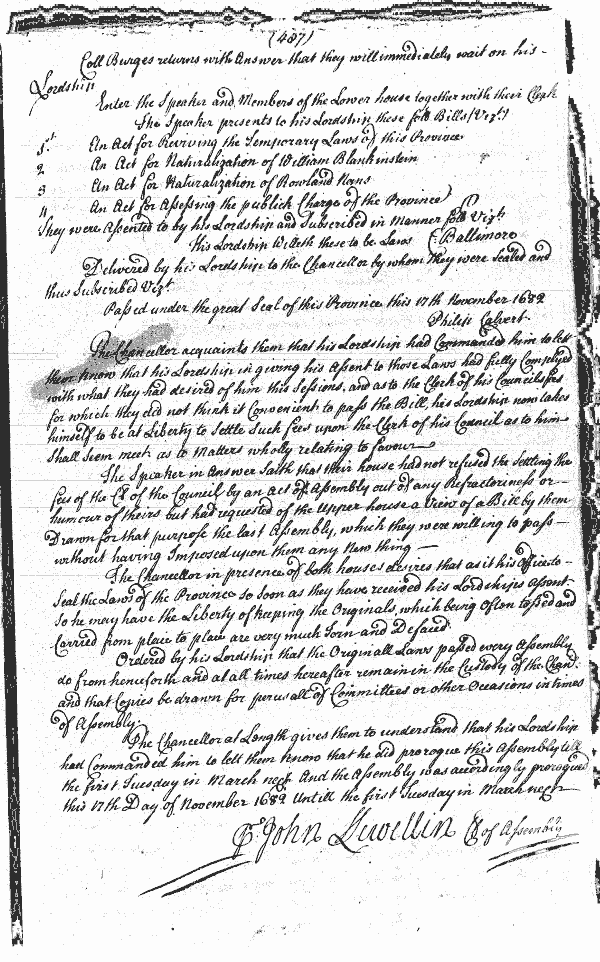 (487)
Coll Burges returns with Answer that they will immediately wait on his -
Lordship
Enter the Speaker and Members of the Lower house together with their Clerk
The Speaker presents to his Lordship these foll Bills (Vizt)
1.st An Act for Reviving the Temporary Laws of this Province
2 An Act for Naturalization of William Blankinstein
3 An Act for Naturalization of Rowland Nans
4 An Act for Assessing the publick Charge of the Province)
They were Assented to by his Lordship and Subscribed in Manner foll Vizt.
His Lordship Willeth these to be Laws (C Baltimore
Delivered by his Lordship to the Chancellor by whom they were Sealed and
thus Subscribed Vizt.
Passed under the great Seal of this Province this 17th November 1682
Philip Calvert.
The Chancellor acquaints them that his Lordship had Commanded him to lett
them know that his Lordship in giving his Assent to those Laws had fully Complyed
with what they had desired of him this Sessions, and as to the Clerk of his Councils fees
for which they did not think it Convenient to pass the Bill, his Lordship now takes
himself to be at Liberty to Settle Such fees upon the Clerk of his Council as to him
Shall Seem meet as to Matters wholly relating to favour
The Speaker in Answer Saith that their house had not refused the Settling the
fees of the Cl of the Council by an act of Assembly out of any Refractoriness or -
humour of theirs but had requested of the Upper house a View of a Bill by them
Drawn for that purpose the last Assembly, which they were willing to pass -
without having Imposed upon them any New thing -
The Chancellor in presence of both houses desires that as it is his Office to -
Seal the Laws of the Province So soon as they have received his Lordships Assent
So he may have the Liberty of keeping the Originals, which being often tossed and
Carried from place to place are very much Torn and Defaced
Ordered by his Lordship that the Originall Laws passed every Assembly
do from henceforth and at all times hereafter remain in the Custody of the Chan:
and that Copies be drawn for perusall of Committees or other Occasions in times
of Assembly
The Chancellor at Length gives them to understand that his Lordship
had Commanded him to lett them know that he did prorogue this Assembly till
the first Tuesday in March next And the Assembly was accordingly prorogued
this 17th Day of November 1682 Untill the first Tuesday in March next
Pr John Lewellin Cl of Assembly